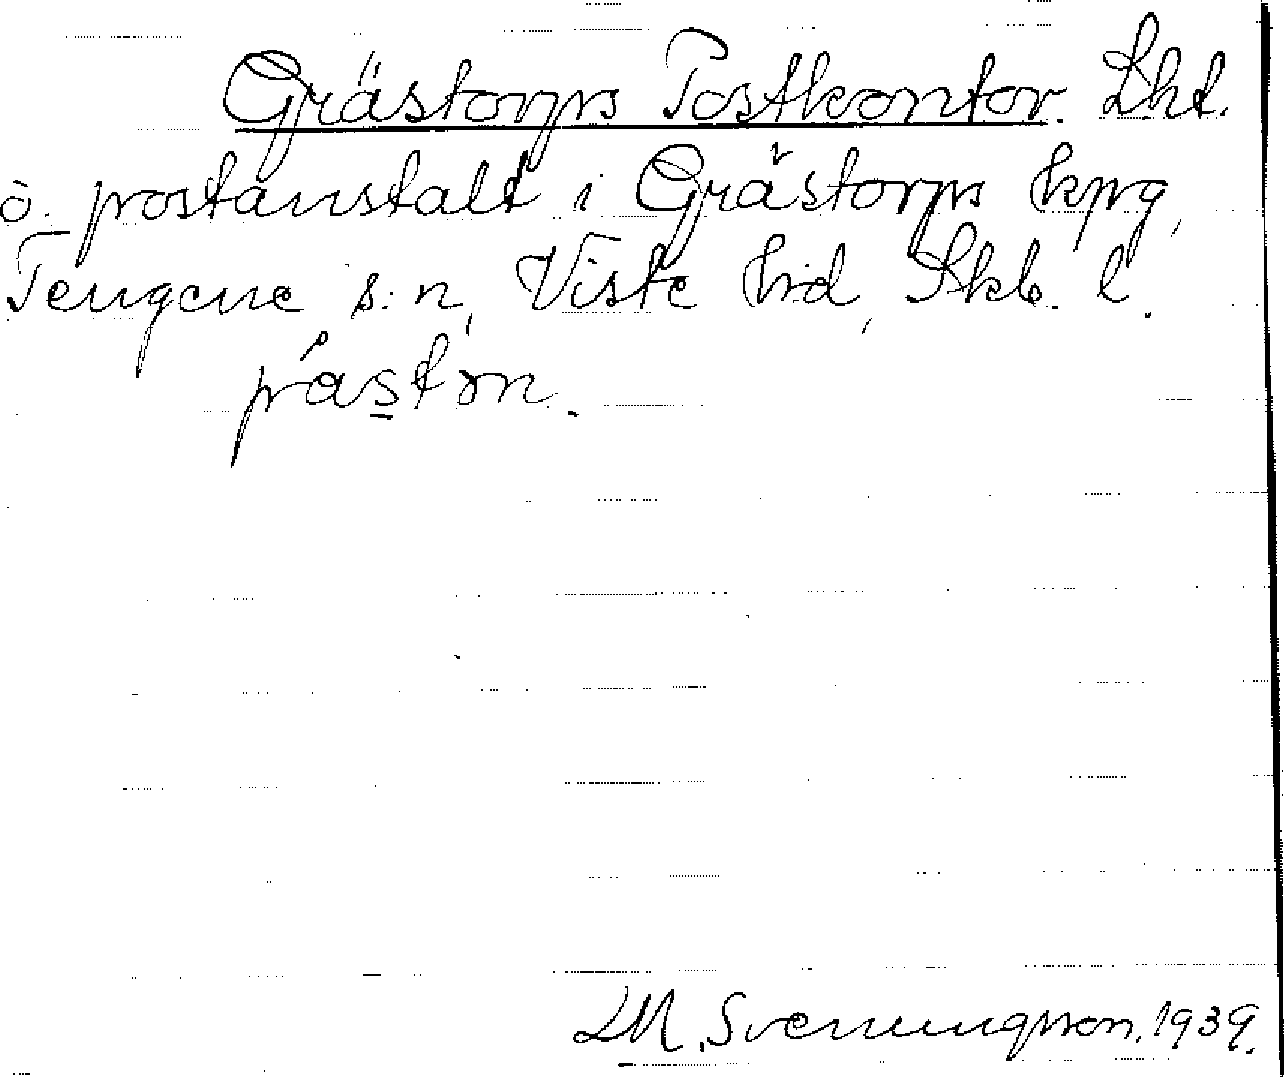 Grästorps Postkontor. Lht.
o. postanstalt i Grästorps kpg,
Tengene s:n, Viste hd, Skb. l.
pástǝn.
LM. Svenungsson. 1939.